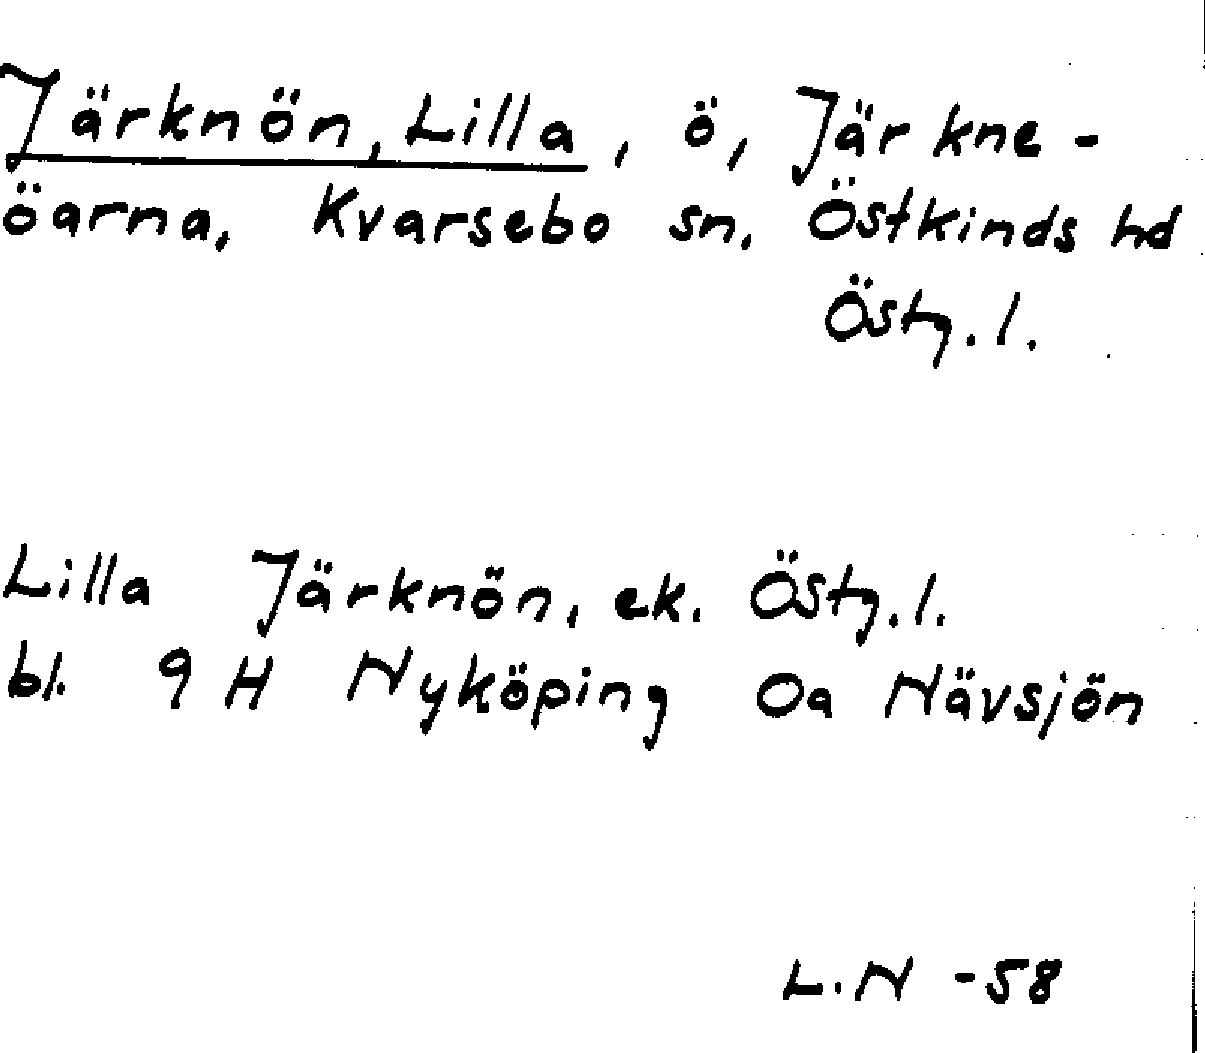 Järknön, Lilla, ö, Järkne-
öarna, Kvarsebo sn, Östkinds hd
Östg. l.
Lilla Järknön, ek. Östg. l.
bl. 9 H Nyköping Oa Nävsjön
L. N -58